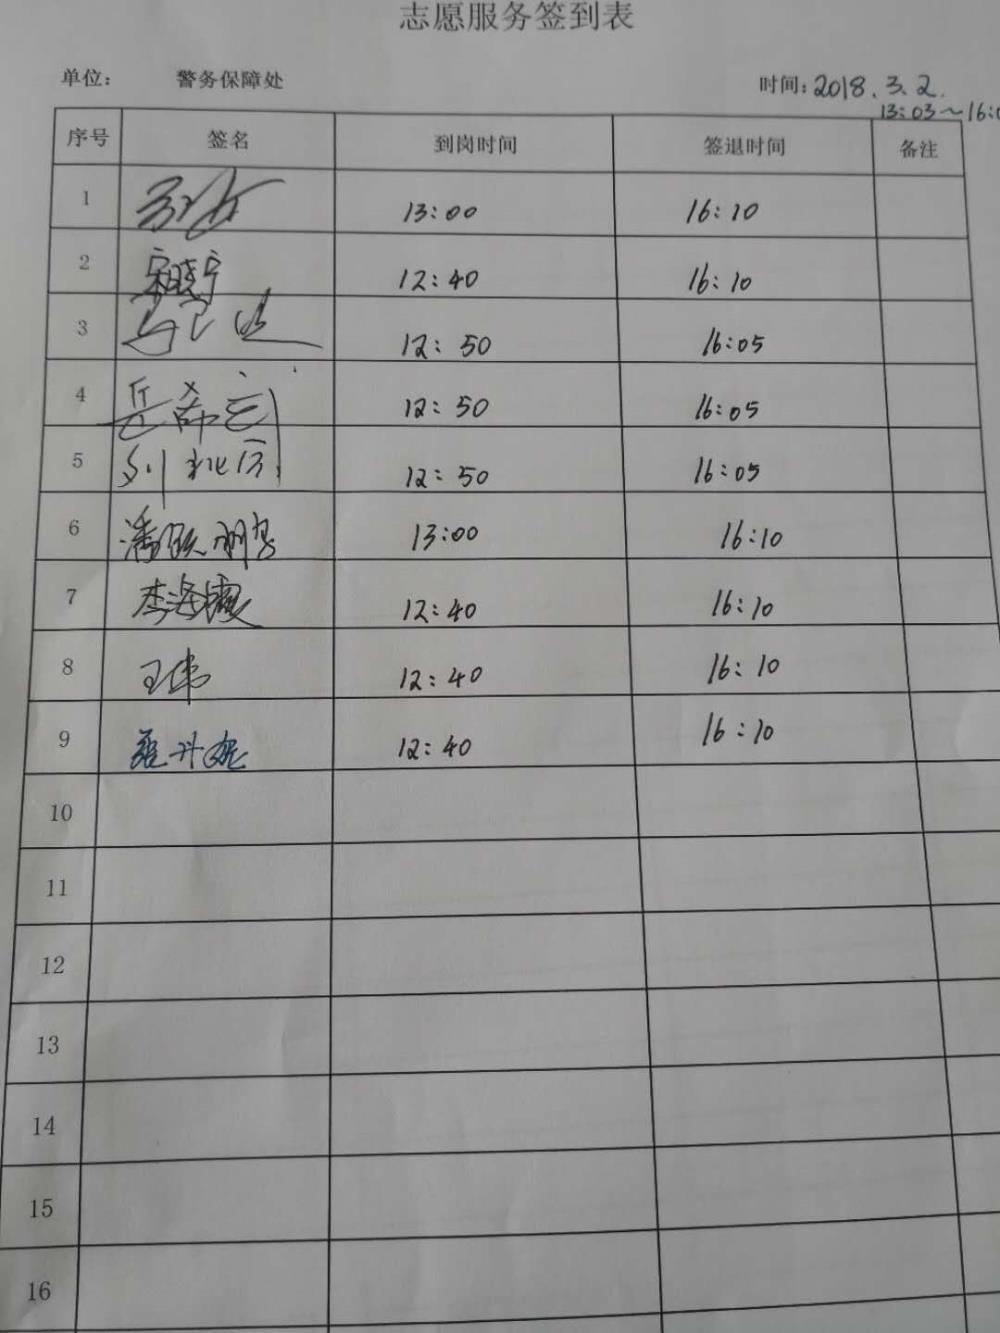 志愿服务签到表
单位： 警务保障处 时间：2018.3.2.
13:03～16:0
序号 签名 到岗时间 签退时间 备注
1 13:00 16:10
2 宋晓宁 12:40 16:10
3 12:50 16:05
4 12:50 16:05
5 12:50 16:05
6 13:00 16:10
7 李海霞 12:40 16:10
8 王伟 12:40 16:10
9 12:40 16:10
10
11
12
13
14
15
16